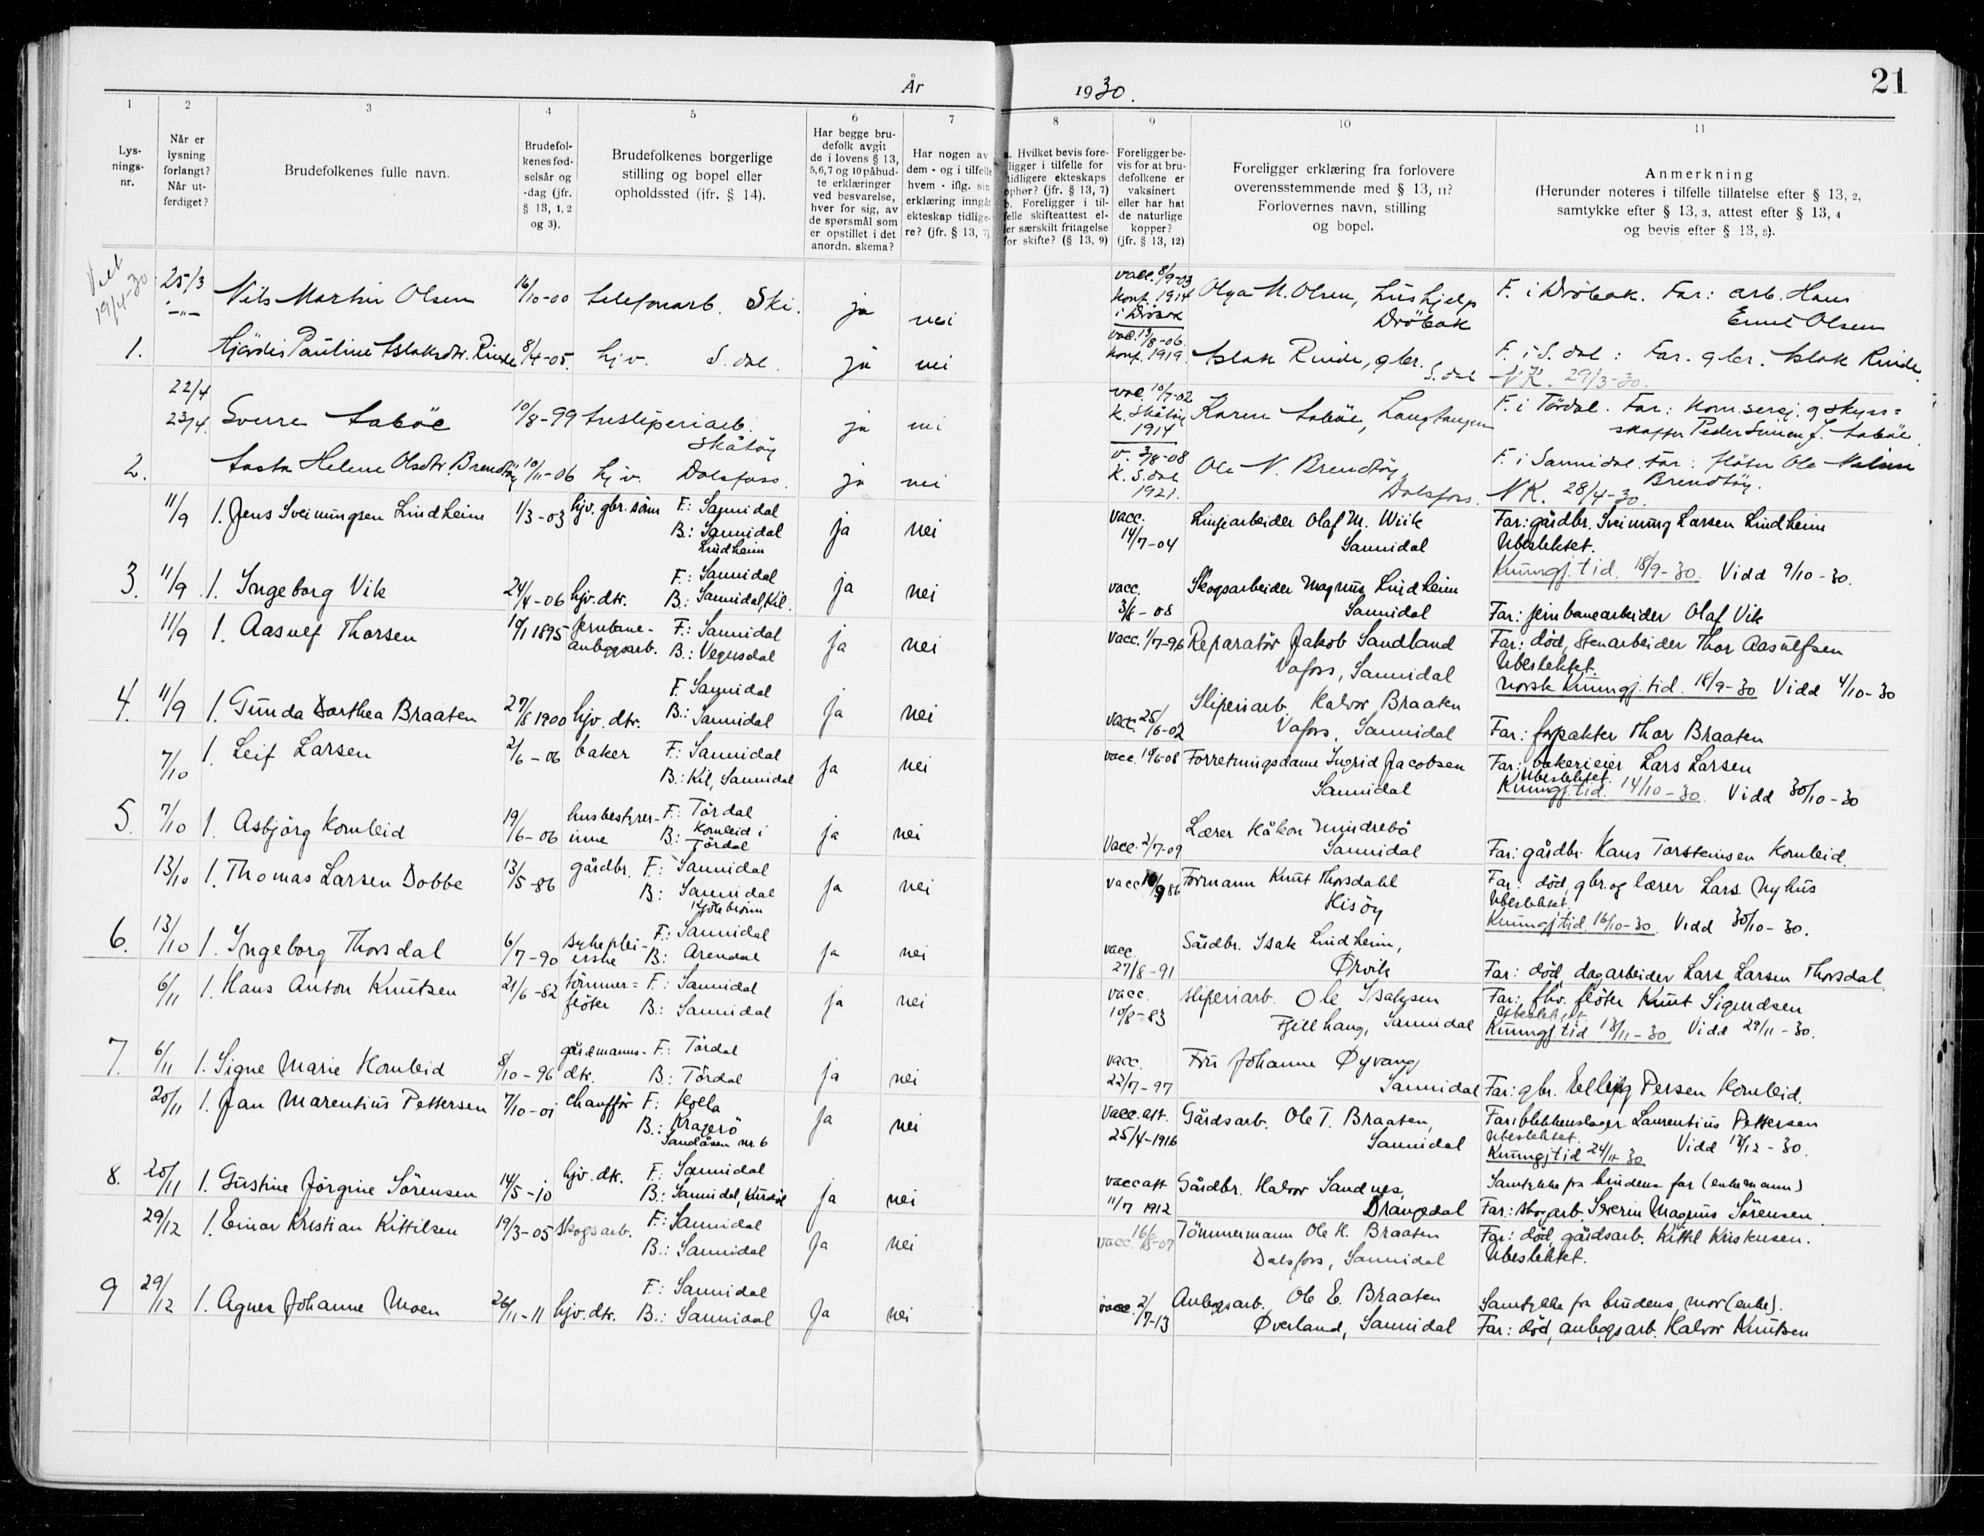 År 1930.
21
1 2 3 4 5 6 7 8 9 10 11
Lys-
nings-
nr.
Når er
lysning
forlangt?
Når ut-
ferdiget?
Brudefolkenes fulle navn.
Brudefol-
kenes fød-
selsår og
-dag (jfr.
§ 13, 1, 2
og 3).
Brudefolkenes borgerlige
stilling og bopel eller
opholdssted (jfr. § 14).
Har begge bru-
defolk avgit
de i lovens § 13,
5,6,7 og 10 påbud-
te erklæringer
ved besvarelse,
hver for sig, av
de spørsmål som
er opstillet i det
anordn. skema?
Har nogen av
dem - og i tilfelle
hvem - iflg. sin
erklæring inngått
ekteskap tidlige-
re? (jfr. § 13, 7)
. Hvilket bevis fore-
ligger i tilfelle for
tidligere ekteskaps
ophør? (jfr. § 13, 7)
b. Foreligger i til-
felle skifteattest el-
ler særskilt fritagelse
for skifte? (§ 13, 9)
Foreligger be-
vis for at bru-
defolkene er
vaksinert
eller har hat
de naturlige
kopper?
(jfr. § 13, 12)
Foreligger erklæring fra forlovere
overensstemmende med § 13, 11?
Forlovernes navn, stilling
og bopel.
Anmerkning
(Herunder noteres i tilfelle tillatelse efter § 13, 2,
samtykke efter § 13, 3, attest efter § 13, 4
og bevis efter § 13, 8).
19/4-30
25/3 Nils Martin Olsen 16/10-00 telefonarb. Ski. ja nei vacc. 8/9-03 konf. 1914 i Dröbak Olga M. Olsen, hushjelp Dröbak F. i Dröbak. Far: arb. Hans Emil Olsen
1. Hjördis Pauline Aslaksdtr. Rinde 8/4-05. hjv. S.dal ja nei vac. 19/8-06. konf. 1919. Aslak Rinde, gbr. S.dal F. i S.dal: Far. gbr. Aslak Rinde.
NK. 29/3-30.
22/4
23/4. Sverre Aabøe 10/8-99 tresliperiarb. Skåtöy ja nei vac. 10/7-02 K. Skåtöy 1914 Karen Aabøe, Langtangen F. i Tördal. Far: kom.sersj. og skyss=
skaffer Peder Simen J. Aabøe.
2. Aasta Helene Olsdtr Brendtöy 10/11-06 hjv. Dalsfoss. ja nei v. 3/8-08 K. S.dal 1921. Ole N. Brendtöy, Dalsfoss. F. i Sannidal. Far: fløter Ole Nilsen
Brendtöy.
NK. 28/4-30
11/9 1. Jens Sveinungsen Lindheim 1/3-03 hjv. gbr. sönn F: Sannidal B: Sannidal Lindheim ja nei vacc. 14/7-04 Linjearbeider Olaf M. Wiik Sannidal Far: gårdbr. Sveinung Larsen Lindheim
Ubeslektet.
Kunngj.tid. 18/9-30 Vidd 9/10-30.
3. 11/9 1. Ingeborg Vik 24/4-06 hjv. dtr. F.: Sannidal B.: Sannidal, Kil. ja nei vacc. 3/8-08 Skogsarbeider Magnus Lindheim Sannidal Far: jernbanearbeider Olaf Vik
11/9 1. Aasulf Thorsen 19/1 1895 Jernbane-anleggsarb. F.: Sannidal B.: Vegusdal ja nei vacc. 1/7-96 Reparatör Jakob Sandland Vafoss, Sannidal Far: död, Stenarbeider Thor Aasulfsen
Ubeslektet.
norsk Kunngj.tid. 18/9-30 Vidd 4/10-30
4. 11/9 1. Gunda Dorthea Braaten 27/8 1900 hjv. dtr. F. Sannidal B.: Sannidal ja nei vacc. 25/6-02 Sliperiarb. Halvor Braaten Vafoss, Sannidal Far: forpakter Thor Braaten
7/10 1. Leif Larsen 2/6-06 baker F: Sannidal B.: Kil, Sannidal ja nei vacc. 19/6-08 Forretningsdame Ingrid Jacobsen Sannidal Far: bakerieier Lars Larsen
Ubeslektet.
Kunngj.tid. 14/10-30. Vidd 30/10-30
5. 7/10 1. Asbjörg Kornleid 19/6-06 husbestyrer-inne F: Tördal B: Kornleid i Tördal ja nei Vacc. 2/7-09 Lærer Håkon Mindrebö Sannidal Far: gårdbr. Hans Torsteinsen Kornleid.
13/10 1. Thomas Larsen Dobbe 13/5-86 gårdbr. F: Sannidal B: Sannidal Kjölebrönn ja nei vacc 10/9 86 Formann Knut Thorsdahl Kisöy Far: död, gbr. og lærer Lars Nyhus
Ubeslektet.
Kunngj.tid. 16/10-30. Vidd 30/10-30.
6. 13/10 1. Ingeborg Thorsdal 6/7-90 sykeplei-erske F: Sannidal B: Arendal ja nei vacc. 27/8-91 Gårdbr. Isak Lindheim, Ørvik Far: död, dagarbeider Lars Larsen Thorsdal.
6/11 1. Hans Anton Knutsen 21/6-82 tömmer=flöter F: Sannidal B.: Sannidal ja nei vacc. 10/8-83 Sliperiarb. Ole Isaksen Fjellhaug, Sannidal Far: fhv. flöter Knut Sigurdsen
Ubeslektet.
Kunngj.tid 13/11-30 Vidd 29/11-30.
7. 6/11 1. Signe Marie Kornleid 8/10-96 gårdmanns-dtr. F: Tördal B: Tördal ja nei vacc. 22/7-97 Fru Johanne Øyvang Sannidal Far: gbr. Elling Persen Kornleid.
20/11 1. Jan Marentius Pettersen 7/10-01 chaufför F: B.: Kragerö Sandåsen nr. 6 ja nei vacc. att. 25/4-1916 Gårdsarb. Ole T. Braaten, Sannidal Far: blikkenslager Laurentius Pettersen
Ubeslektet.
Kunngj.tid 24/11-30 Vidd 13/12-30.
8. 20/11 1. Gustine Jörgine Sörensen 14/5-10 hjv. dtr. F: Sannidal B: Sannidal, Kurdöl ja nei vacc att 11/7 1912 Gårdbr. Halvor Sandnes, Drangedal Samtykke fra brudens far (enkemann)
Far: skogarb. Severin Magnus Sörensen.
29/12 1. Einar Kristian Kittilsen 19/3-05 skogsarb. F: Sannidal B.: Sannidal ja nei vacc. Tömmermann Ole K. Braaten Dalsfoss, Sannidal Far: död, gårdsarb. Kittil Kristensen.
Ubeslektet.
9 29/12 1. Agnes Johanne Moen 26/11-11 hjv. dtr. F: Sannidal B.: Sannidal ja nei vacc. 2/7-13 Anleggsarb. Ole E. Braaten Øverland, Sannidal Samtykke fra brudens mor (enke).
Far: död, anleggsarb. Halvor Knutsen